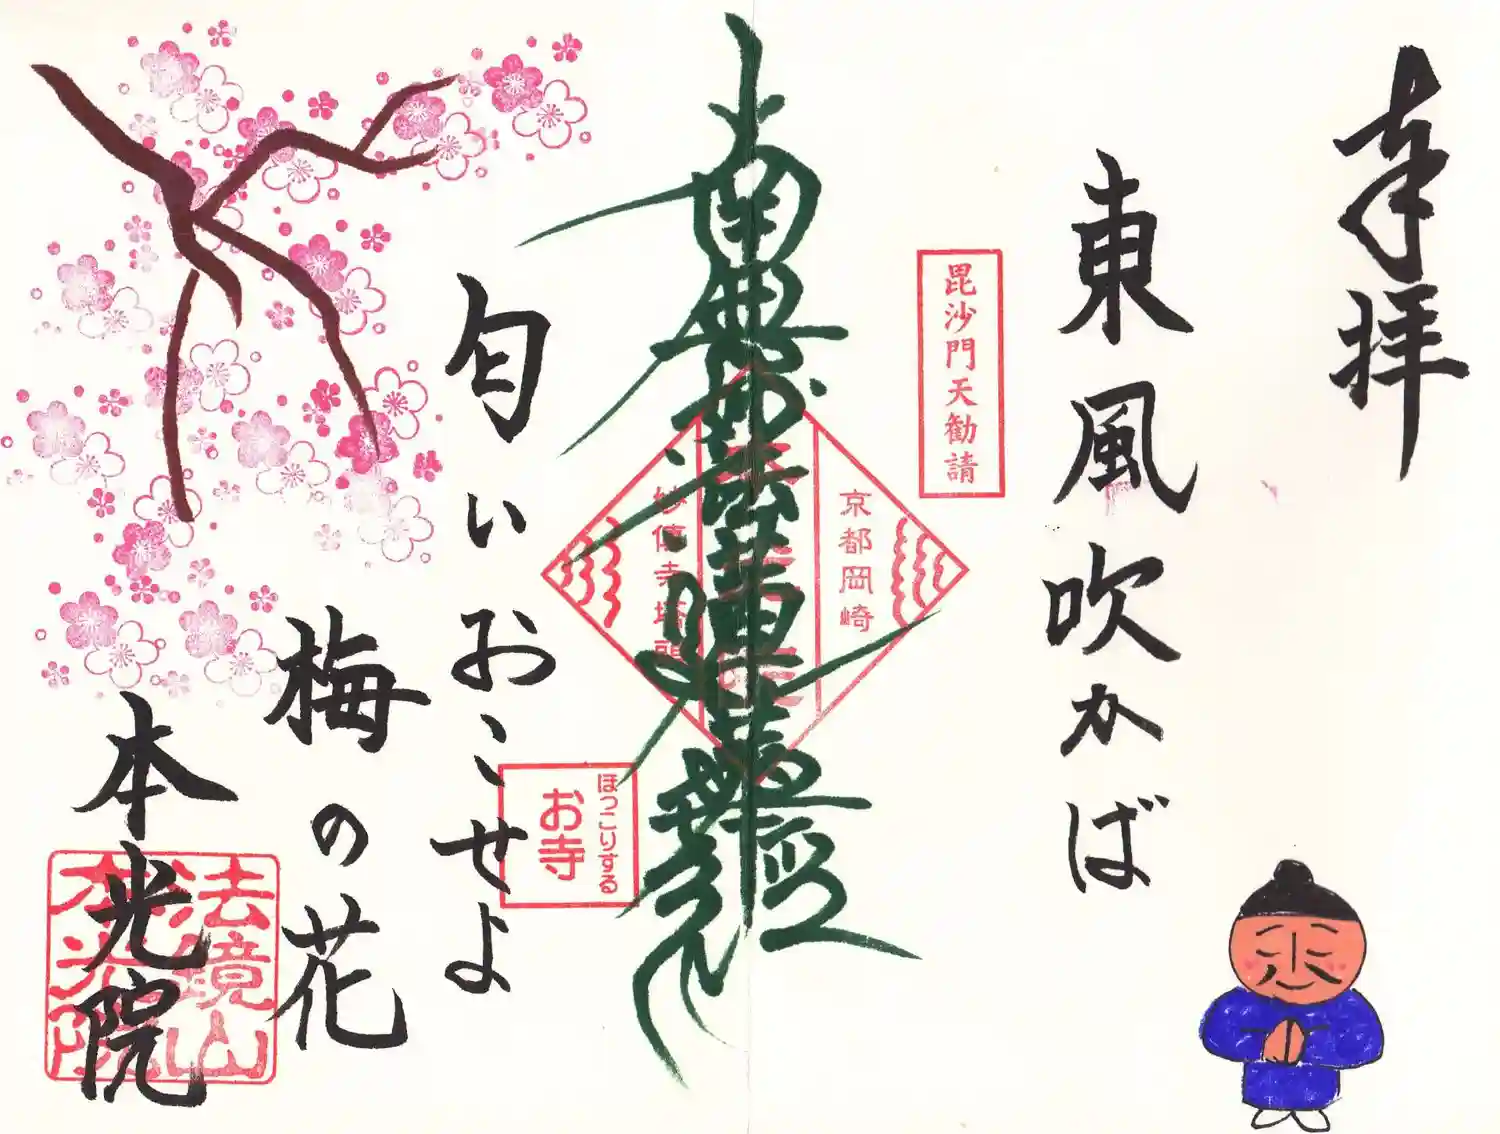 奉拝
東風吹かば
毘沙門天勧請
京都岡崎
妙傳寺塔頭
南無妙法蓮華経
ほっこりする
お寺
匂いおこせよ
梅の花
本光院
法鏡山
本光院